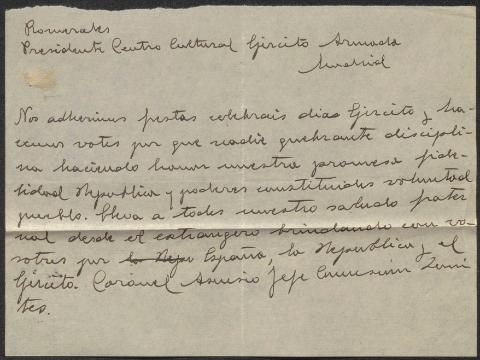 Romerales
Presidente Centro Cultural Ejército Armada
Madrid
Nos adherimos fiestas celebrais dias Ejército y ha-
cemos votos por que nadie quebrante discipli-
na haciendo honor nuestra promesa fide-
lidad Republica y poderes constituidos voluntad
pueblo. Lleva a todos nuestro saludo frater
nal desde el estrangero brindando con vo-
sotros por la Rep España, la Republica y el
Ejército. Coronel Asensio Jefe Comision Limi
tes.